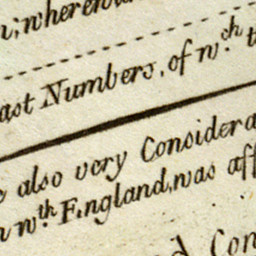 n; wherein
ast Numbers, of wch t
also very Considera
n wth England, was aff
d Con